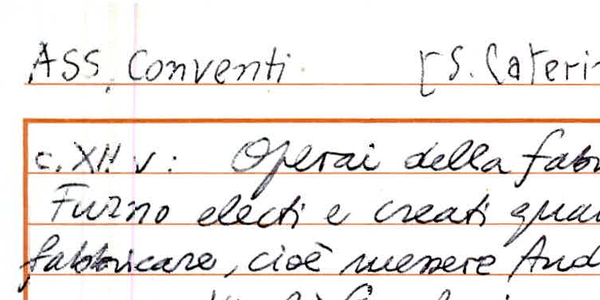 ASS. Conventi [S. Cateri
c. XII v: Operai della fab
Furno electi e creati qua
fabbricare, cioè messere And